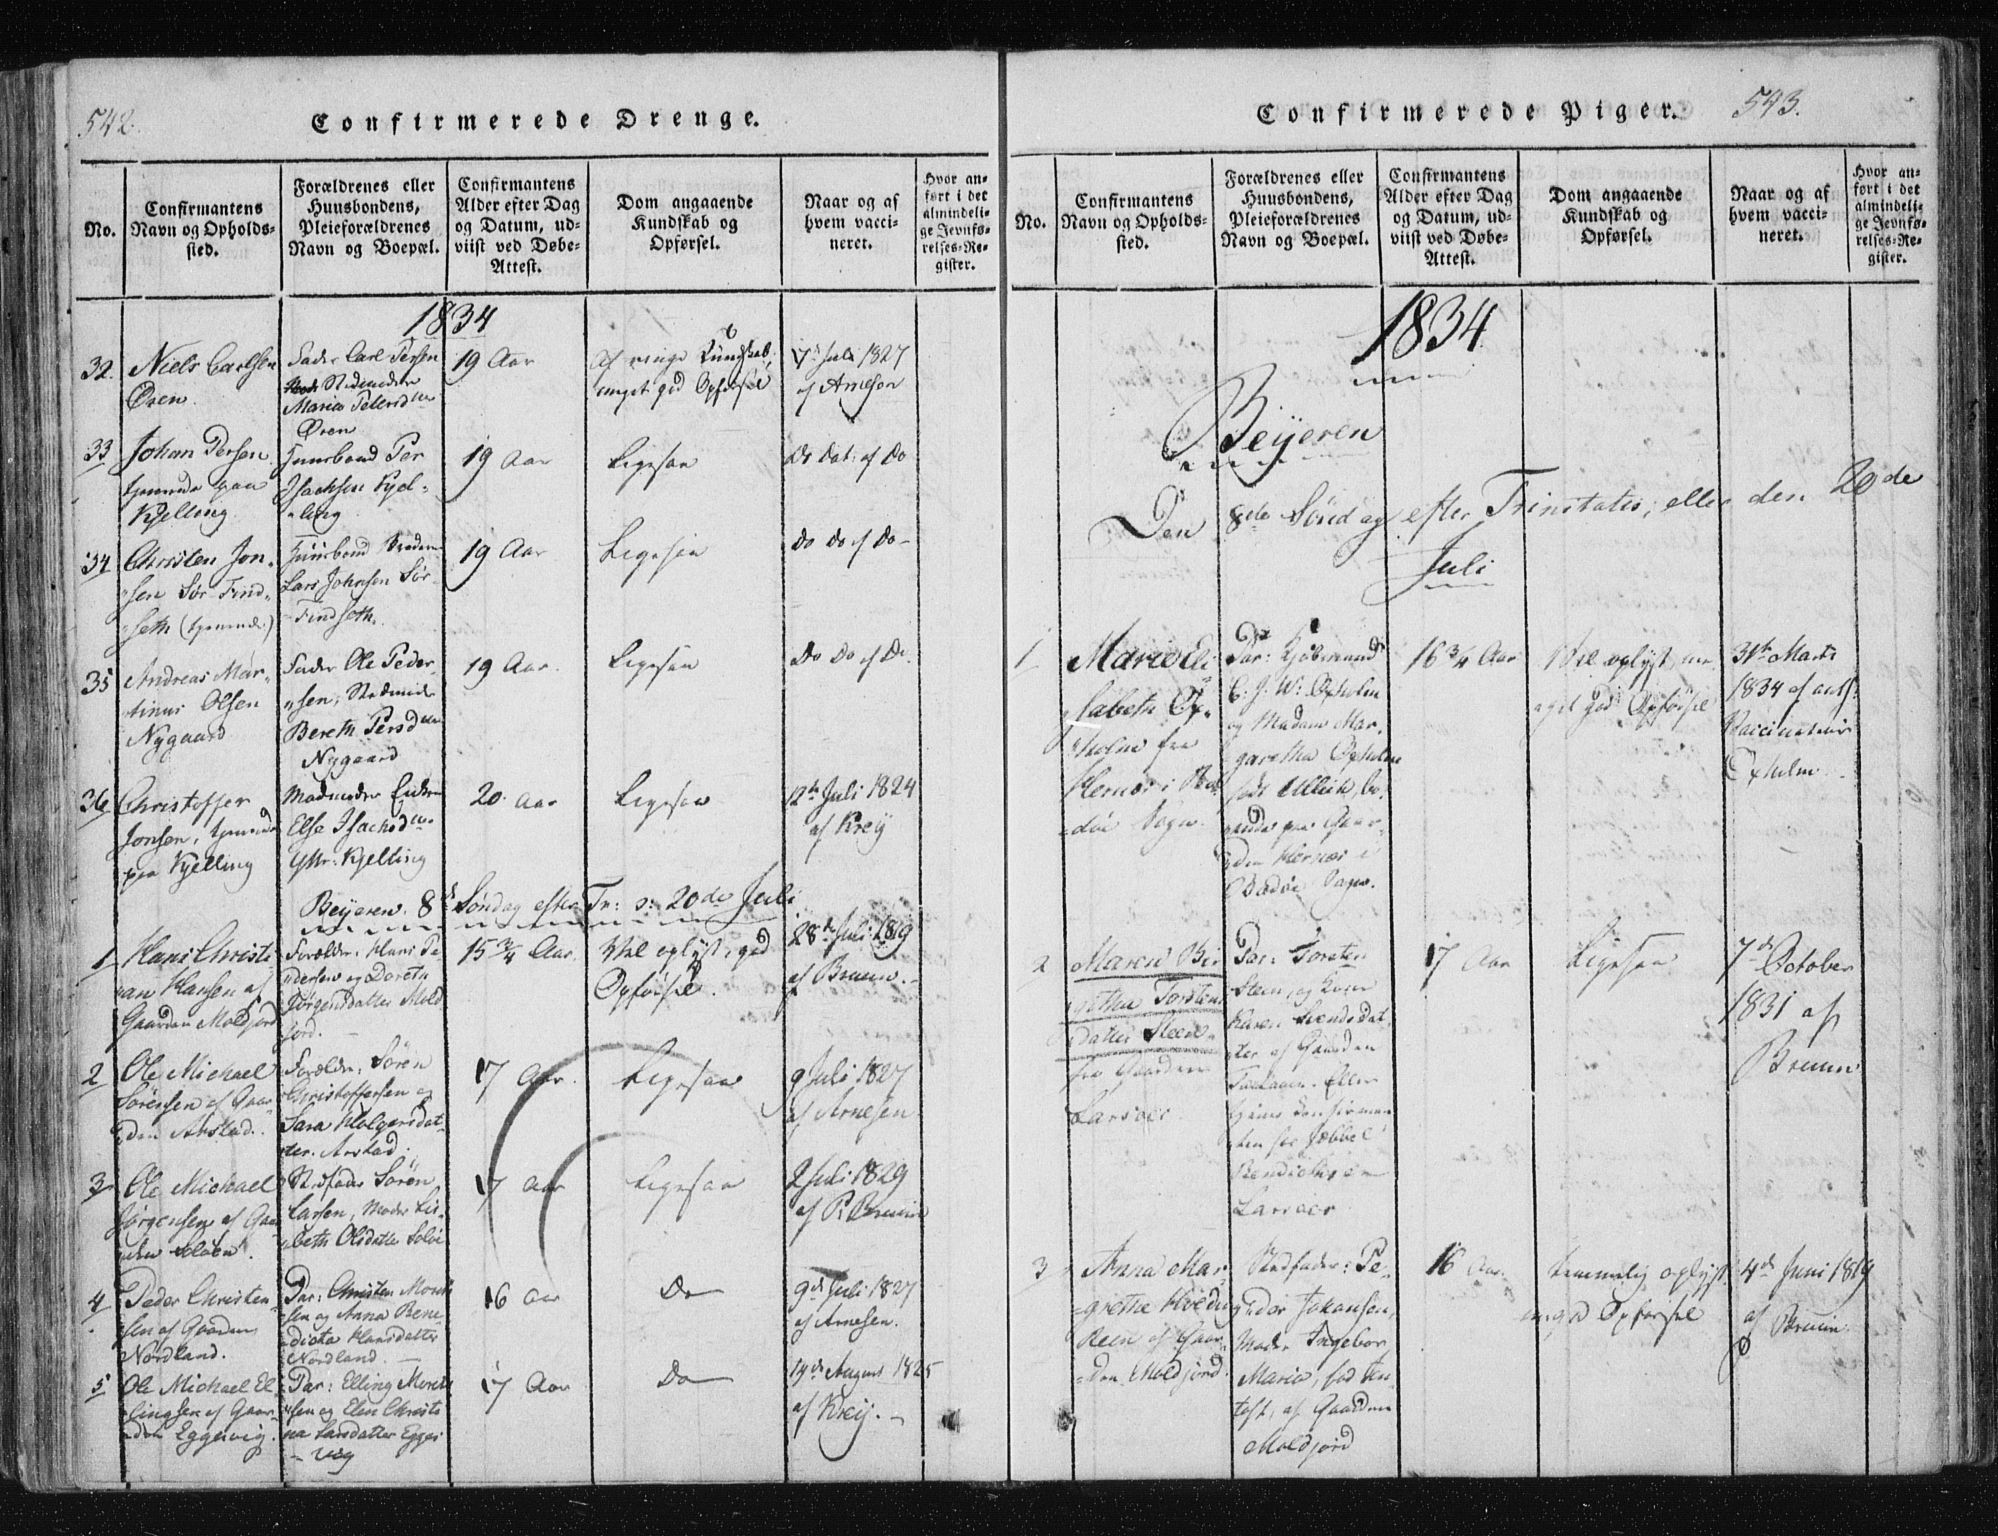 542.
Confirmerede Drenge.
No.
Confirmantens
Navn og Opholds-
sted.
Forældrenes eller
Huusbondens,
Pleieforældrenes
Navn og Boepæl.
Confirmantens
Alder efter Dag
og Datum, ud-
viist ved Døbe-
Attest.
Dom angaaende
Kundskab og
Opførsel.
Naar og af
hvem vacci-
neret.
Hvor an-
ført i det
almindeli-
ge Jevnfø-
relses-Re-
gister.
1834
32.
Niels Carlsen
Øren
Fader Carl Persen
Stedmoder
Maria Petersd
Øren
19 Aar
Af ringe Kundskab,
meget god Opførsel
7de Juli 1827
af Arnesen
33
Johan Persen
tjenende paa
Kjelling
Huusbond Per
Isachsen Kjel-
ling
19 Aar
Ligesaa
Do Dat: af Do
34
Christen Jon-
sen Sør-Find-
seth (tjenende)
Huusbond
Lars Johnsen Sør-
Findseth.
19 Aar
Ligesaa
Do Do af Do
35
Andreas Mar-
tinus Olsen
Nygaard
Fader Ole Peder-
sen, Stedmoder
Bereth Persd
Nygaard
19 Aar.
Ligesaa
Do Do af Do.
36
Christoffer
Jonsen, tjenende
paa Kjelling
Madmoder Enken
Else Isachsd
Kjelling
20 Aar
Ligesaa
12te Juli 1824
af Kreÿ
Beijeren. 8de Søndag efter Tr: o: 20de Juli
1
Hans Christi-
an Hansen af
Gaarden Moldjord
Forældre: Hans Pe-
dersen og Doreth
Jørgensdatter Mold-
jord.
15 3/4 Aar.
Vel oplyst, god
Opførsel.
28de Juli 1819
af Bruun.
2
Ole Michael
Sörensen af Gaar-
den Arstad.
Forældre: Sören
Christoffersen og
Sara Holgersdat-
ter. Arstad.
17 Aar.
Ligesaa
9 Juli 1827
af Arnesen
3
Ole Michael
Jørgensen af Gaar-
den Soløen.
Stedfader Sören
Larsen, Moder Lis-
beth Olsdatter Soløe
17 Aar
Ligesaa
2 Juli 1829
af P. Bruun
4
Peder Christen-
sen af Gaarden
Nordland.
Par: Christen Mont-
sen og Anna Bene-
dicta Hansdatter
Nordland.
16 Aar
Do
9de Juli 1827
af Arnesen.
5
Ole Michael El-
lingsen af Gaar-
den Eggesvig.
Par: Elling Morets-
sen og Elen Christi-
na Larsdatter Egges-
vig
17 Aar
Do
19de August 1825
af Kreÿ.
Confirmerede Piger.
543.
No.
Confirmantens
Navn og Opholds-
sted.
Forældrenes eller
Huusbondens,
Pleieforældrenes
Navn og Boepæl.
Confirmantens
Alder efter Dag
og Datum, ud-
viist ved Døbe-
Attest.
Dom angaaende
Kundskab og
Opførsel.
Naar og af
hvem vacci-
neret.
Hvor an-
ført i det
almindeli-
ge Jevnfø-
relses-Re-
gister.
1834
Beijeren
Den 8de Söndag efter Trinitatis, eller den 20de
Juli
1
Marie Eli-
sabeth Ox-
holm fra
Hernæs i Bod-
døe Sogn.
Par: Kjøbmand
C. J. W: Oxholm
og Madam Mar-
garetha Oxholm
født Ulleik, bo-
ende paa Gaar-
den Hernæs i
Bodøe Sogn.
16 3/4 Aar
Vel oplyst, me-
get god Opførsel
31te Marts
1834 af
Vaccinateur
Oxholm
2
Maren Bir-
githa Torstens-
datter Steen
fra Gaarden
Larsoes
Par: Torsten
Steen, og Kone
Karen Svendsdat-
ter af Gaarden
Eller
Confirman-
ten
Larsoes
17 Aar
Ligesaa
7de October
1831 af
Bruun
3
Anna Mar-
grethe Hveding
Reen af Gaar-
den Moldjord
Stedfader: Pe-
der Johansen,
Moder Ingebor
Maria, fød Ten-
toft, af Gaarden
Moldjord
16 Aar.
temmelig oplyst
m: god Opførsel
4de Juni 1819
af Bruun.